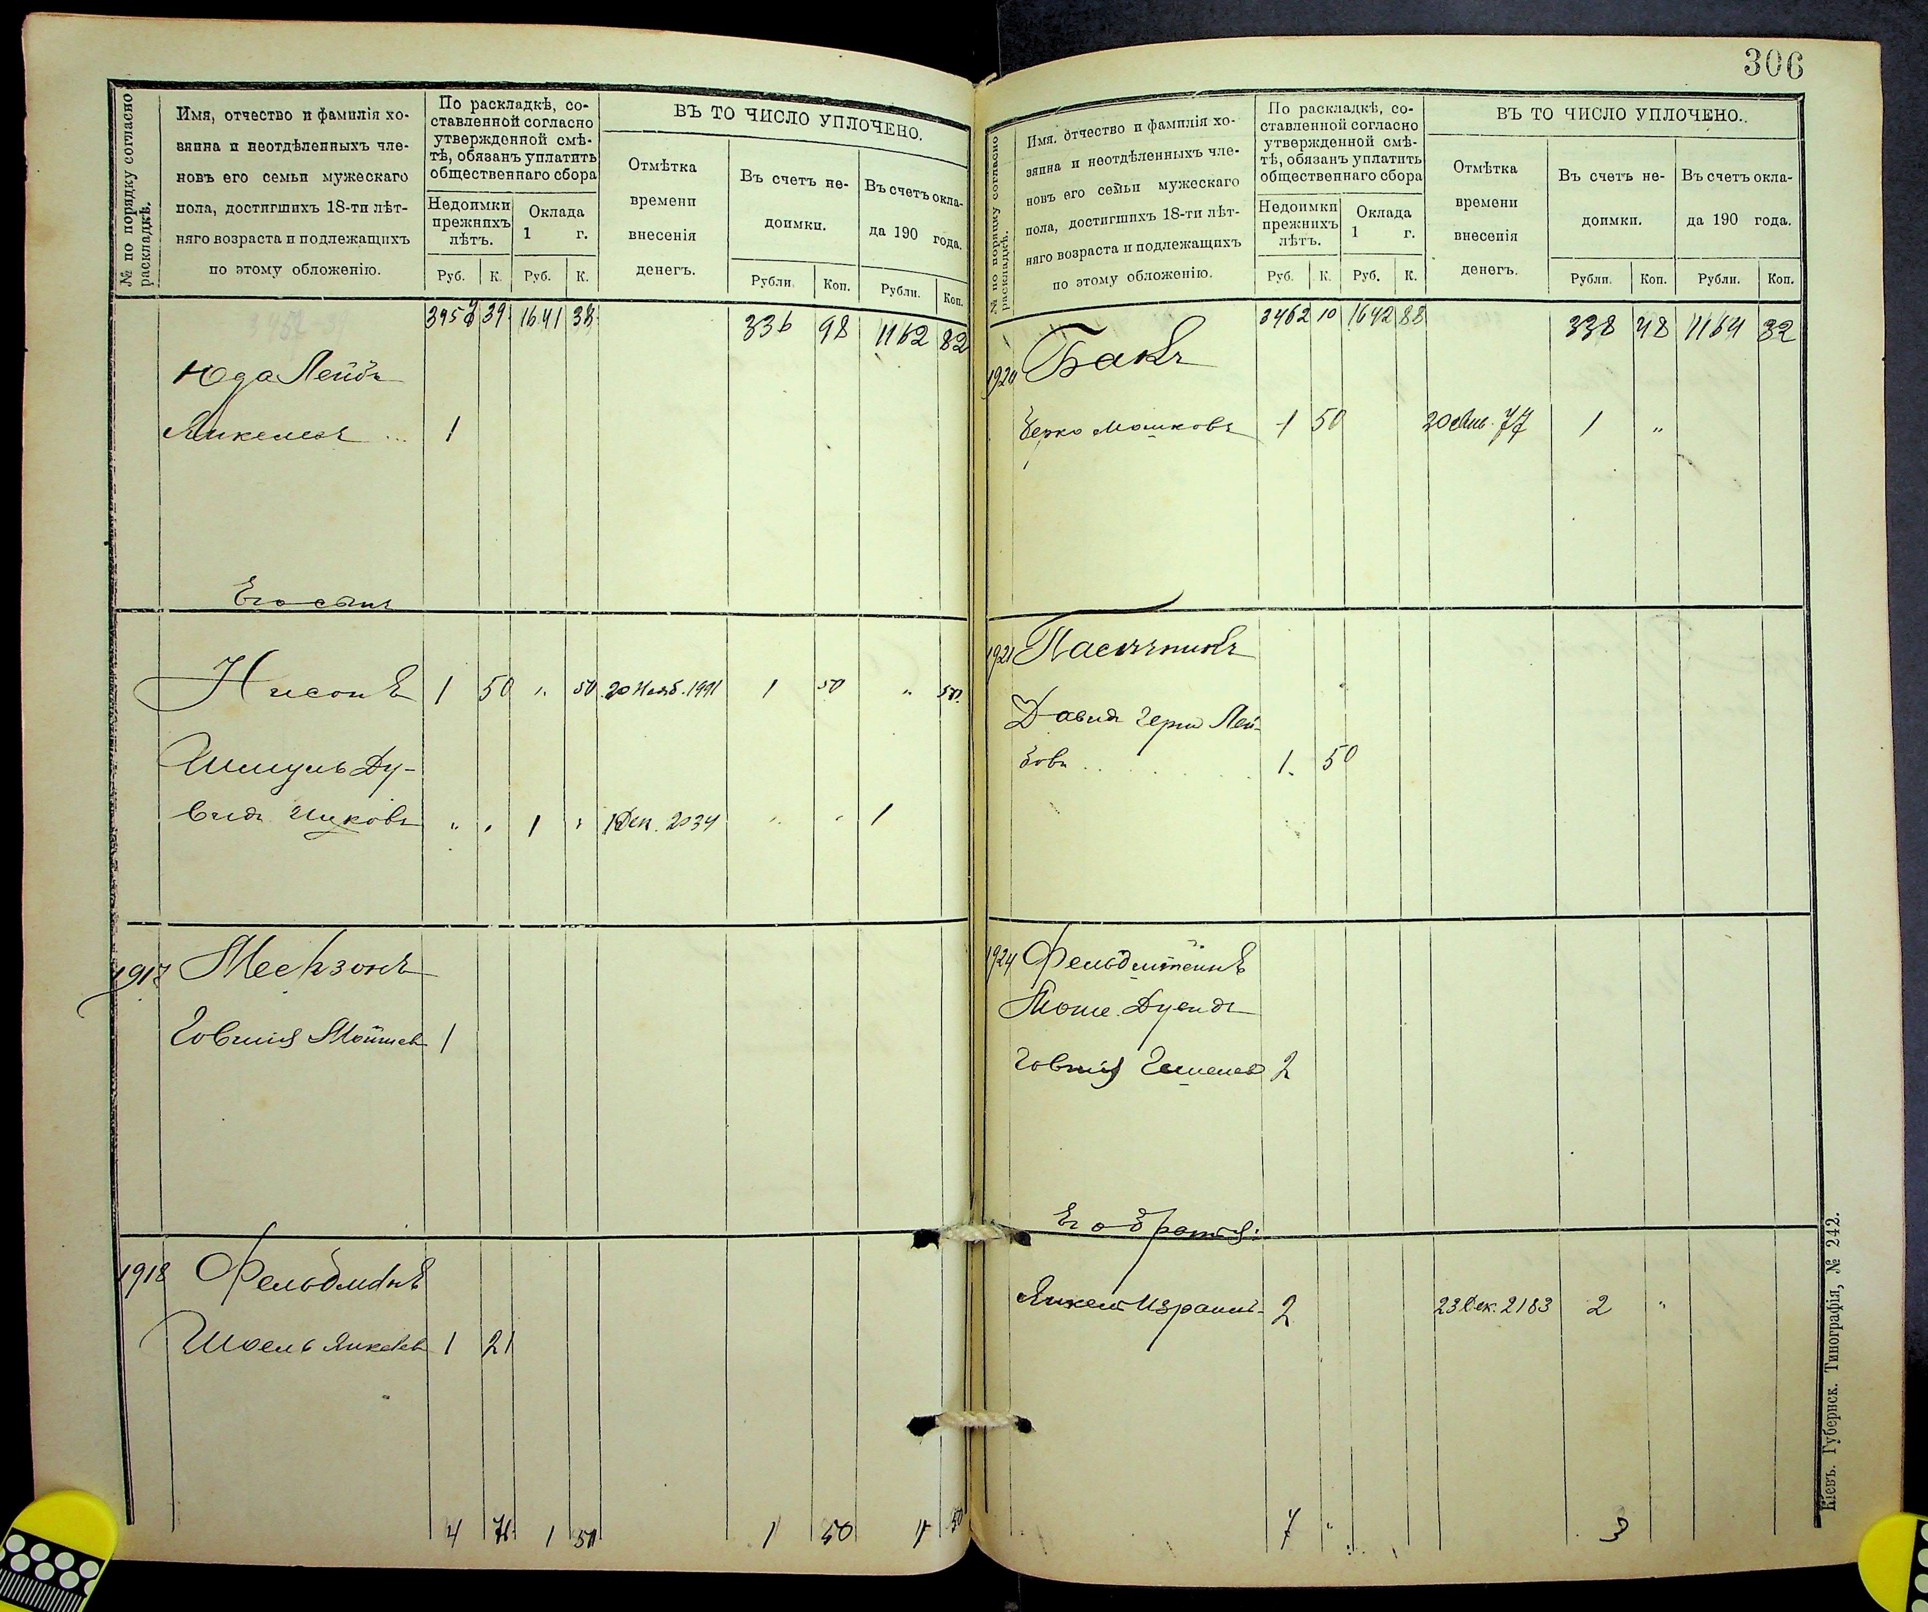 № по порядку согласно раскладкѣ.
Имя, отчество и фамилія хо-
зяина и неотдѣленныхъ чле-
новъ его семьи мужескаго
пола, достигшихъ 18-ти лѣт-
няго возраста и подлежащихъ
по этому обложенію.
По раскладкѣ, со-
ставленной согласно
утвержденной смѣ-
тѣ, обязанъ уплатить
общественнаго сбора
Недоимки
прежнихъ
лѣтъ.
Оклада
1 г.
Руб. К. Руб. К.
ВЪ ТО ЧИСЛО УПЛОЧЕНО.
Отмѣтка
времени
внесенія
денегъ.
Въ счетъ не-
доимки.
Въ счетъ окла-
да 190 года.
Рубли. Коп. Рубли. Коп.
39 1641 38 336 98 1162 82
Юда Лейбъ
Янкелевъ ... 1
Его сынъ
Нисонъ 1 50 " 50 20 Нояб. 1991 1 50 " 50
Шмуль Ду-
видъ Ицковъ " " 1 " 1 Дек. 2034 " " 1
1917 Месъзонъ
Говшія Мойшев 1
1918 Фельдманъ
Шоель Янкелев 1 21
4 71 1 50 1 50 1 50
306
№ по порядку согласно раскладкѣ.
Имя, отчество и фамилія хо-
зяина и неотдѣленныхъ чле-
новъ его семьи мужескаго
пола, достигшихъ 18-ти лѣт-
няго возраста и подлежащихъ
по этому обложенію.
По раскладкѣ, со-
ставленной согласно
утвержденной смѣ-
тѣ, обязанъ уплатить
общественнаго сбора
Недоимки
прежнихъ
лѣтъ.
Оклада
1 г.
Руб. К. Руб. К.
ВЪ ТО ЧИСЛО УПЛОЧЕНО.
Отмѣтка
времени
внесенія
денегъ.
Въ счетъ не-
доимки.
Въ счетъ окла-
да 190 года.
Рубли. Коп. Рубли. Коп.
3462 10 1642 88 338 48 1164 32
1920 Бакъ
Берко Мошковъ 1 50 20 77 1 "
1921 Пасѣчникъ
Давидъ Герш Лей-
бовъ . . . . . 1 50
1924 Фельдштейнъ
Моше Дувидъ
Говшія 2
Его братья:
Янкель Израиль 2 23 Дек. 2183 2 "
7 " 3
Кіевъ. Губернск. Типографія, № 242.